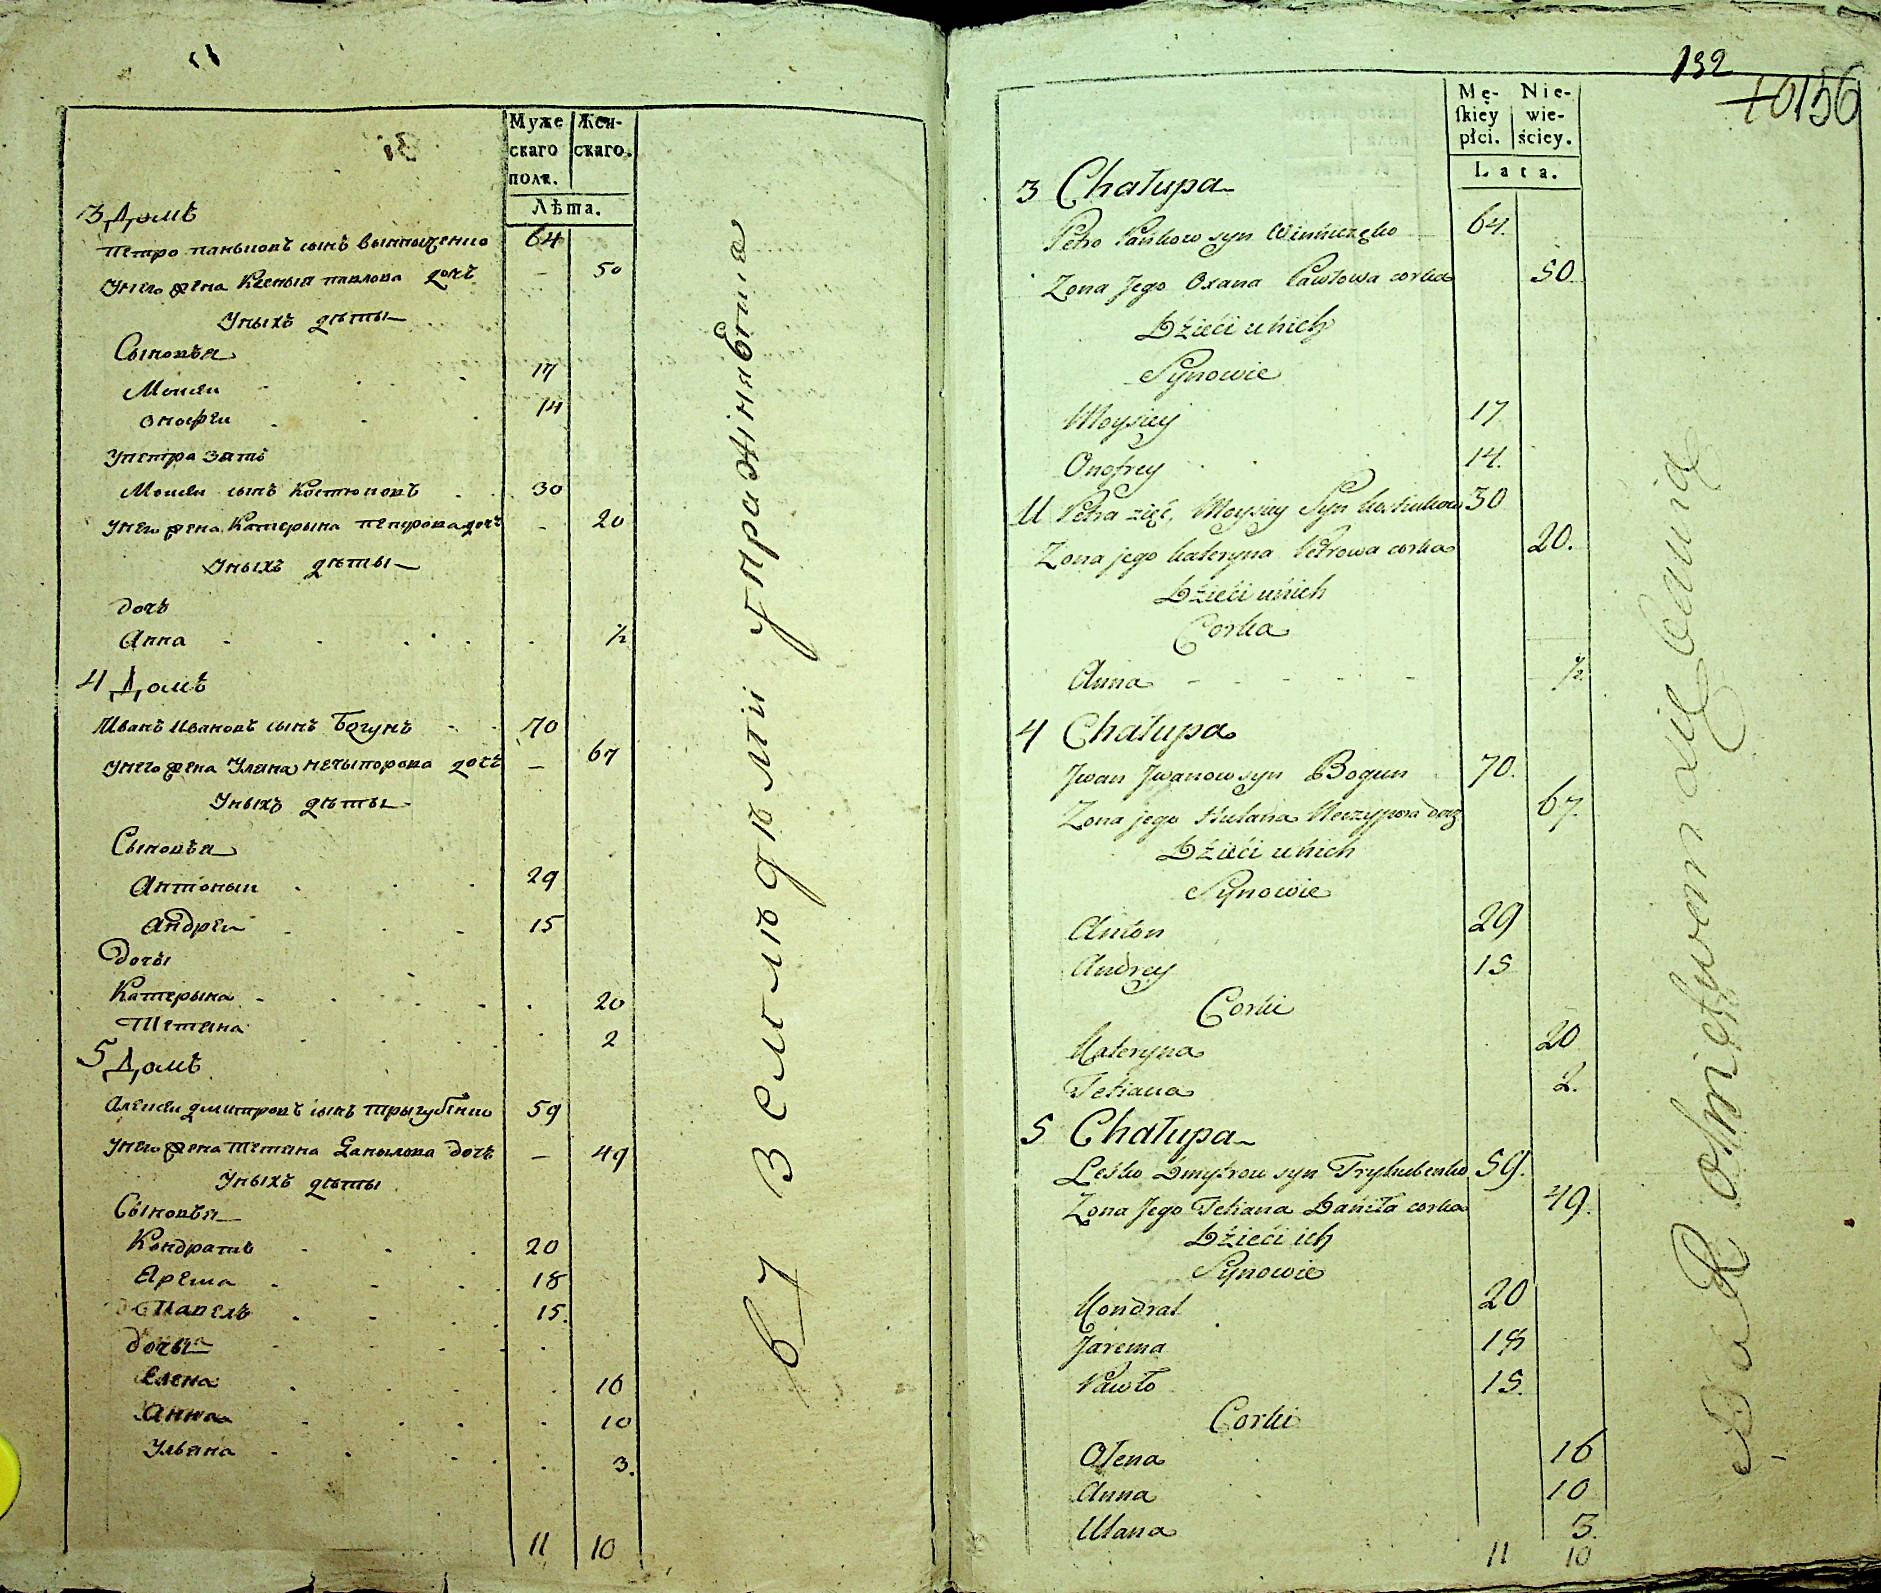 Муже
скаго
полꙋ.
Жен-
скаго.
Лѣта.
3 Домъ
Петро паньковъ сынъ винныченко 64
Унего жена Ксеныя павлова дочь - 50
Уныхъ дѣты
Сыновья
Моисеи 17
Онофреи 14
Упетра зять
Моисеи сынъ Костюковъ 30
Унего жена Катерына петрова дочь - 20
Уныхъ дѣты
дочь
Анна ½
4 Домъ
Иванъ Ивановъ сынъ Богунъ 70
Унего жена Уляна нечыпорова дочь - 67
Уныхъ дѣты
Сыновья
Антоныи 29
Андреи 15
дочы
Катерына 20
Тетяна 2
5 Домъ
Алексеи дмитровъ сынъ трыгубенко 59
Унего жена тетяна Данылова дочь - 49
Уныхъ дѣты
Сыновья
Кондратъ 20
Ярема 18
Павелъ 15.
дочы
Елена 16
Анна 10
Ульяна 3.
11 10
въ землѣдѣлїи упражняется
132
10156
Mę-
skiey
płci.
Nie-
wie-
ściey.
Lata.
3 Chałupa
Petro Pańkow syn Winniczęko 64.
Zona Jego Oxana Pawłowa corka 50.
Dzieci u nich
Synowie
Moysiey 17
Onofrey 14.
U Petra zięć, Moysiey Syn Kostiukow 30
Zona jego Kateryna Petrowa corka 20.
Dzieci u nich
Corka
Anna - - - - - ½
4 Chałupa
Jwan Jwanow syn Bogun 70.
Zona jego Hulana Neczypora docz 67.
Dzieci u nich
Synowie
Anton 29
Andrey 15
Corki
Kateryna 20
Tetiana 2.
5 Chałupa
Leśko Dmytrow syn Tryhubenko 59.
Zona Jego Tetiana Daniła corka 49.
Dzieci ich
Synowie
Kondrat 20
Jarema 18
Pawło 15.
Corki
Ołena 16
Anna 10
Ulana 3.
11 10
Rolnictwem się bawią